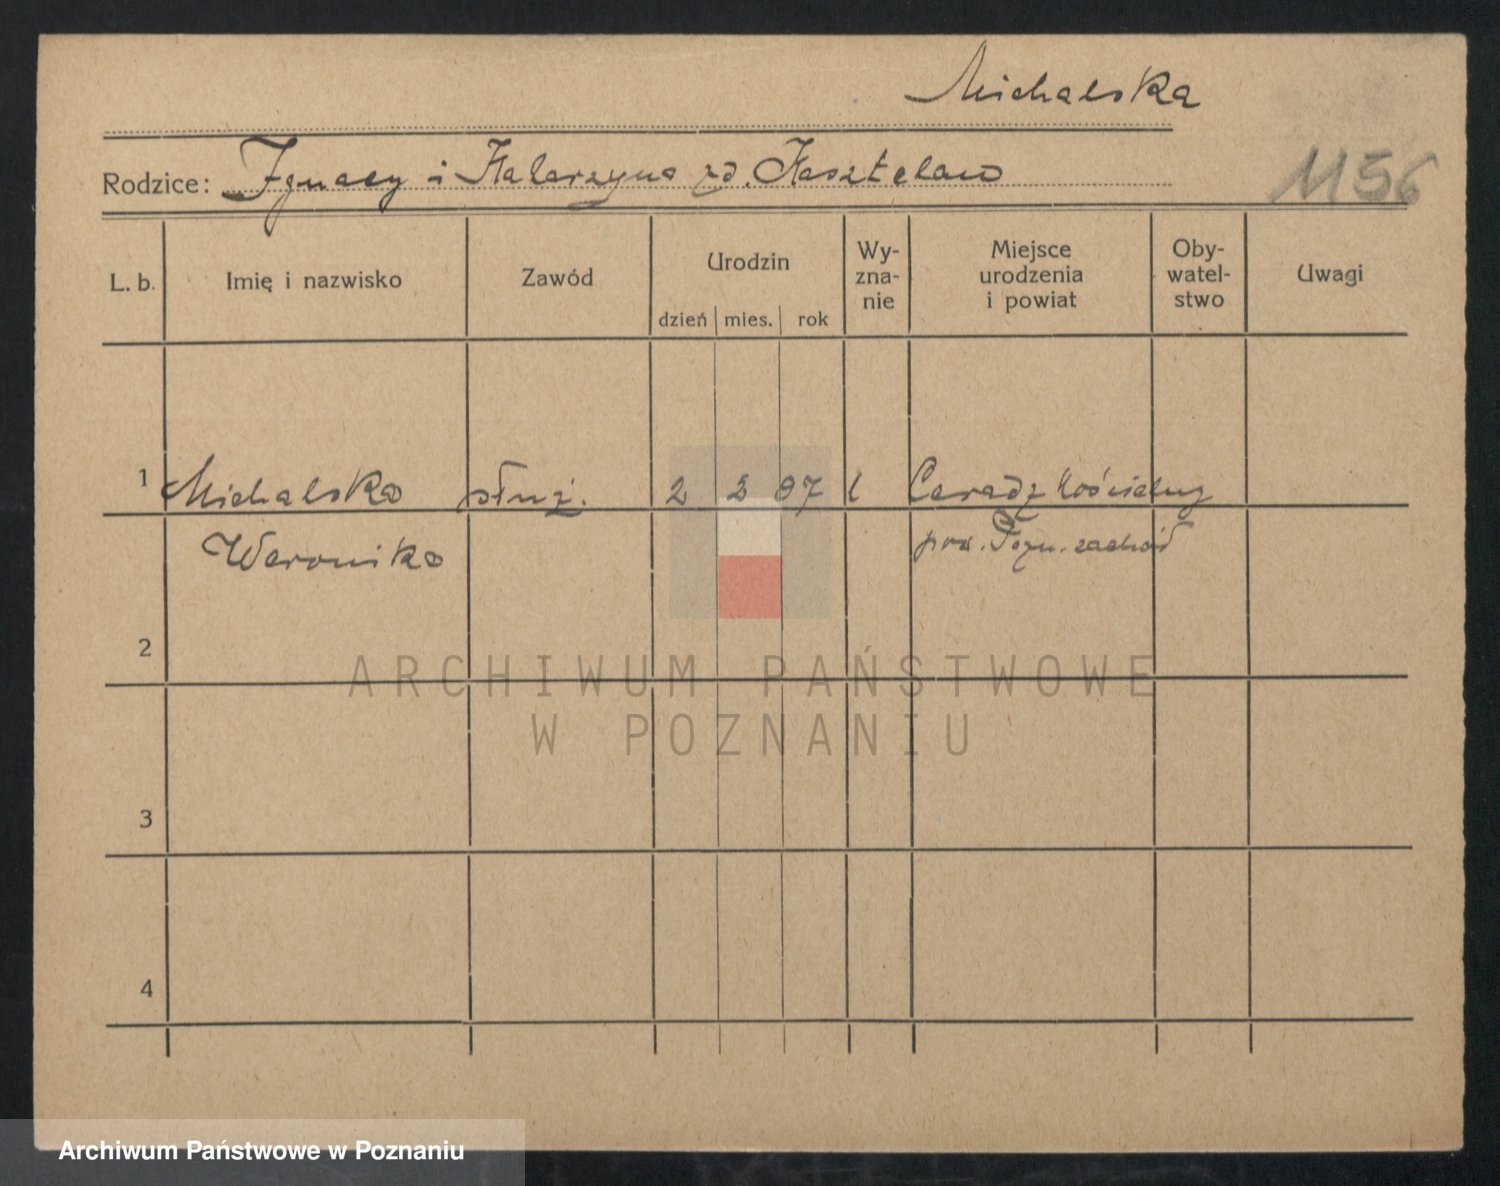 Michalska
Rodzice: Ignacy i Katarzyna zd. Kasztelan
1156
L. b. Imię i nazwisko Zawód Urodzin dzień mies. rok Wy-zna-nie Miejsce urodzenia i powiat Oby-watel-stwo Uwagi
1 Michalska służ. 2 2 97 k Ceradz Kościelny
Weronika pow. Pozn. zachód
2
3
4
ARCHIWUM PAŃSTWOWE
W POZNANIU
Archiwum Państwowe w Poznaniu